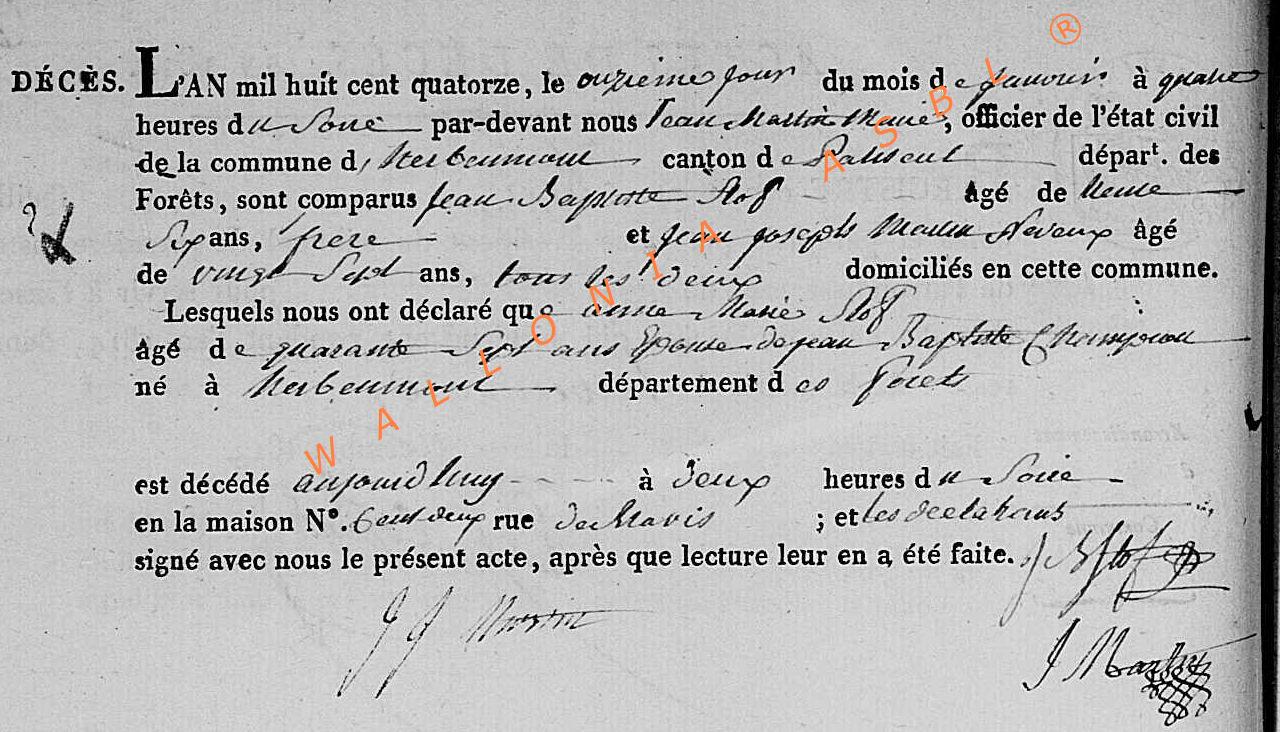 DÉCÈS. L'AN mil huit cent quatorze, le onzieme jour du mois de janvier à quatre
heures du Soire par-devant nous Jean Martin Maire, officier de l'état civil
de la commune d, herbeumont canton de Paliseul départ. des
Forêts, sont comparus jean Baptiste Slof Agé de
Six ans, frere et jean joseph Martin Neveux âgé
de vingt Sept ans, tous les deux domiciliés en cette commune.
Lesquels nous ont déclaré que anne Marie Slof
âgé de quarante Sept ans Epouse de jean Baptiste Champion
né à herbeumont département des forets
est décédé aujourdhuy à deux heures du Soire
en la maison N°. Cent deux rue ; et les declarans
signé avec nous le présent acte, après que lecture leur en a été faite. J B Slof
J J Martin
J Martin
WALLONIA ASBL ®